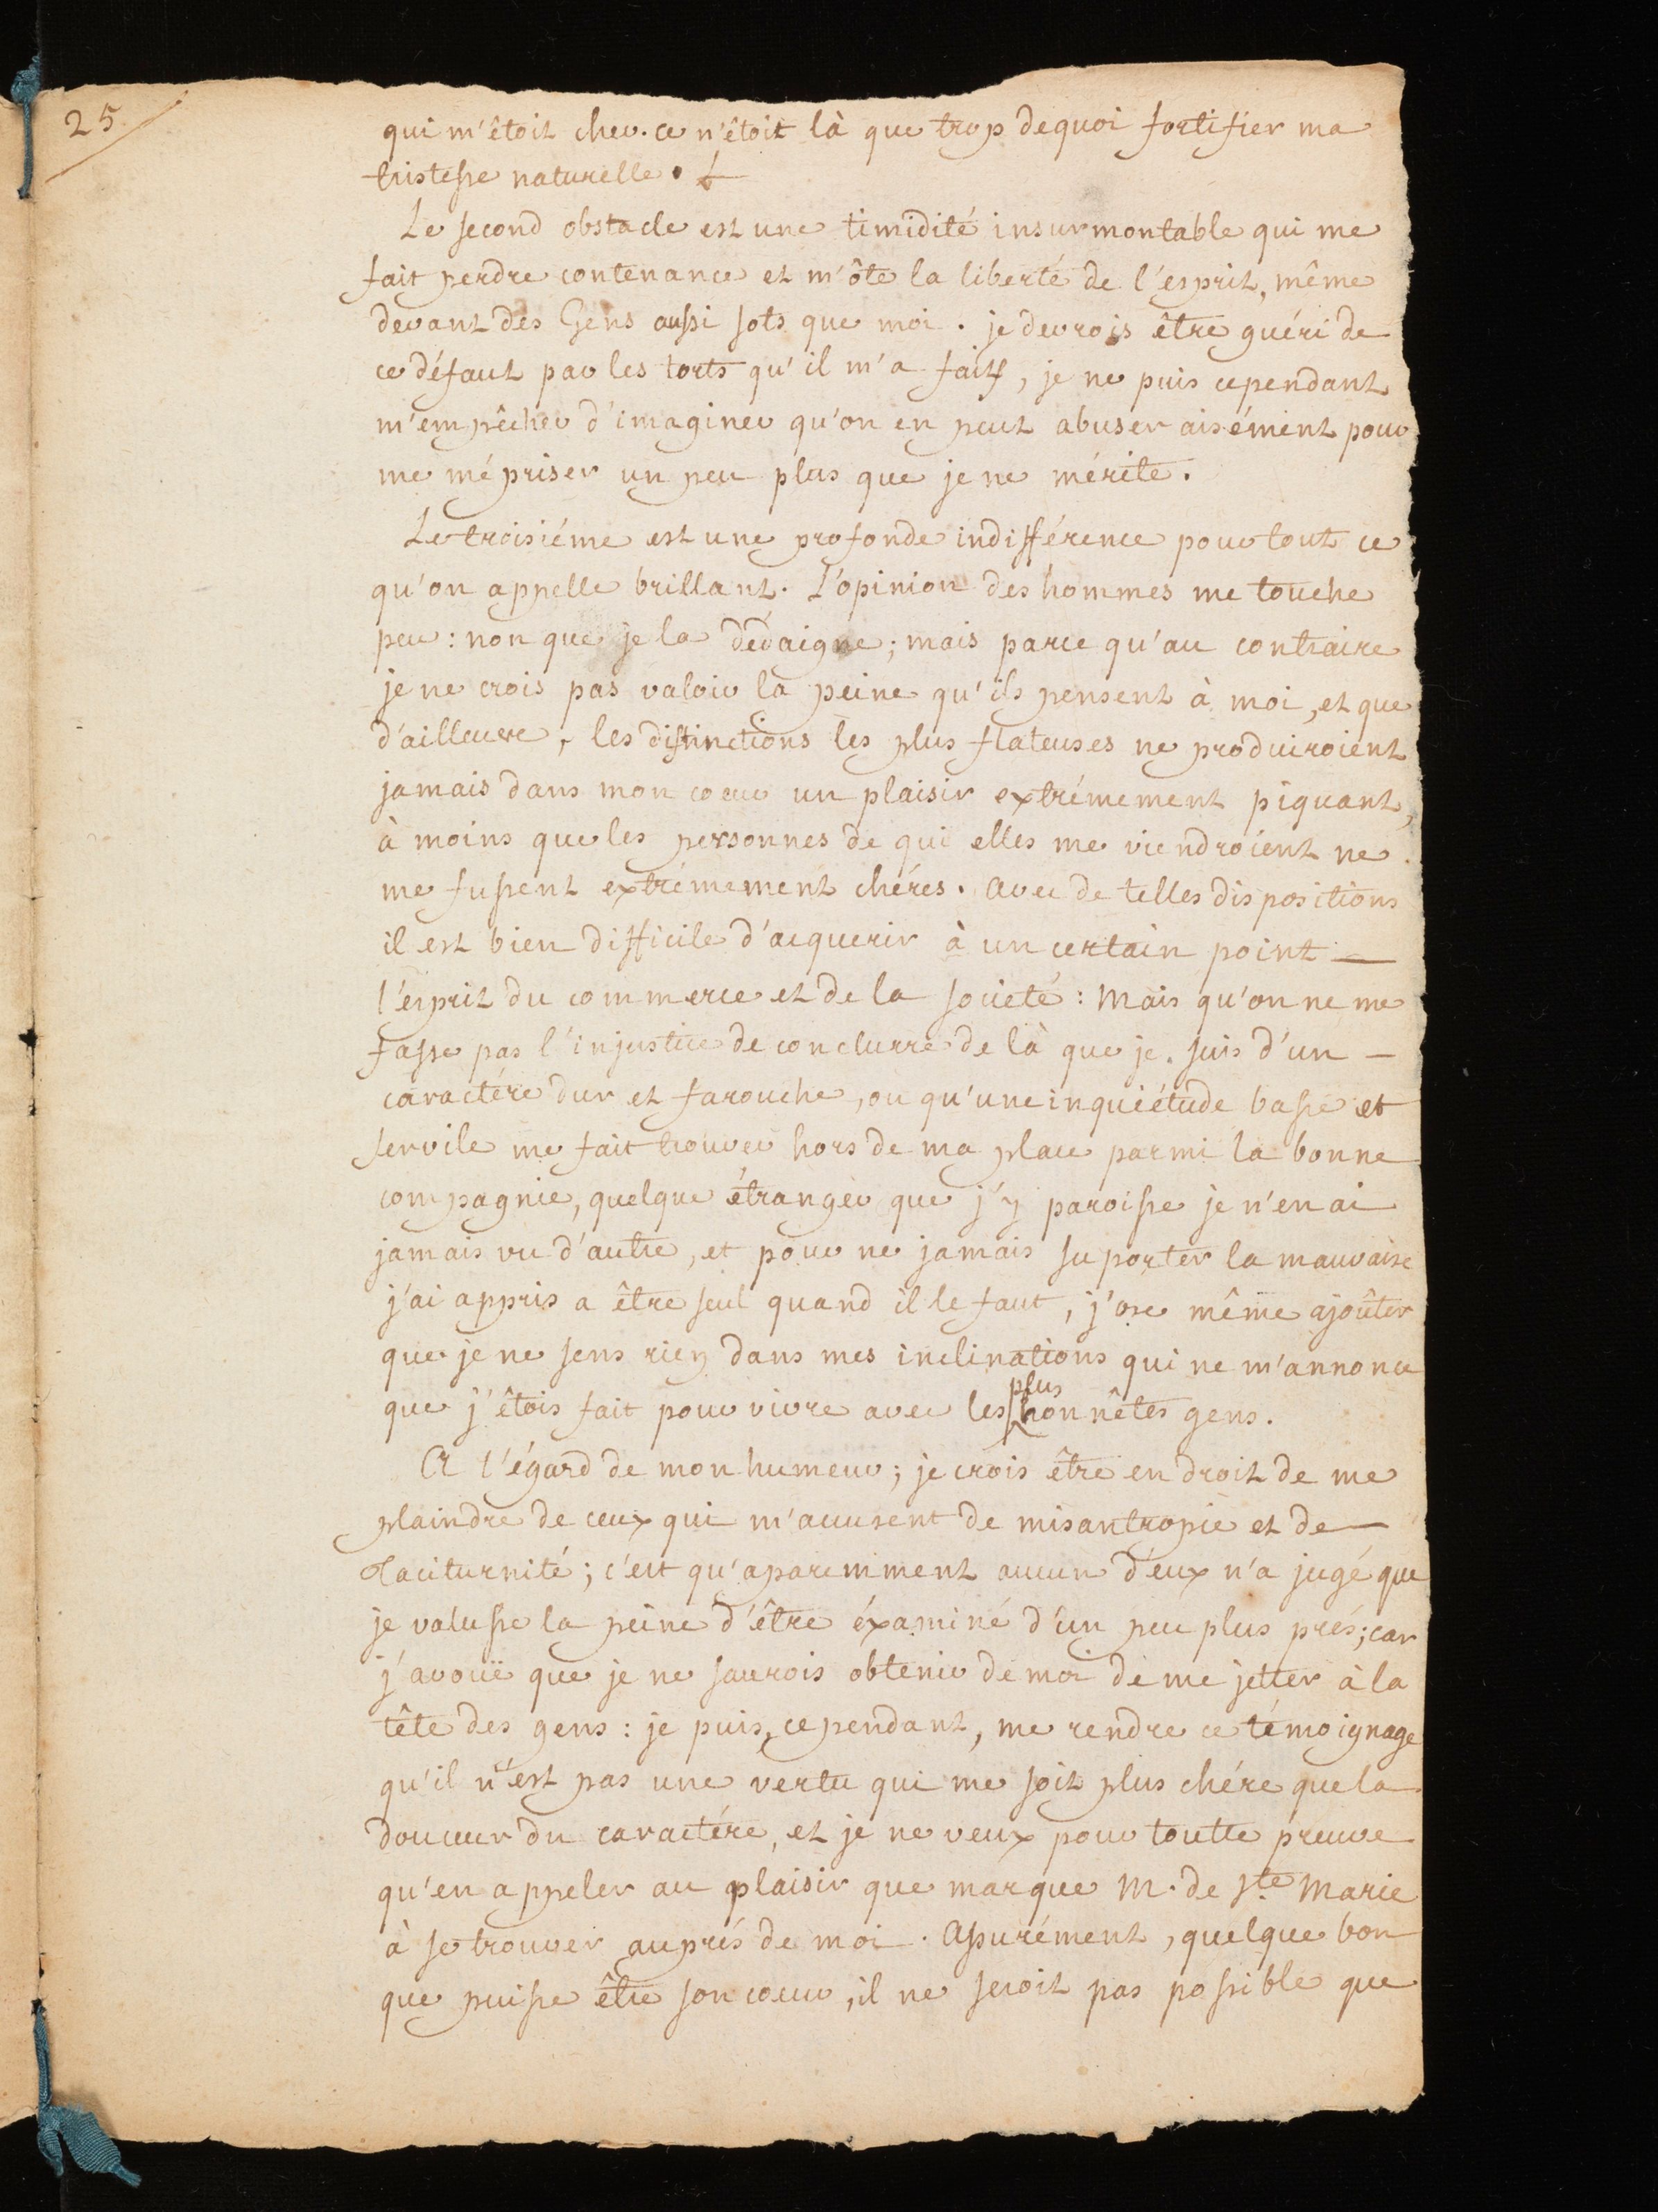 25
qui m'étoit cher. ce n'étoit là que trop dequoi fortifier ma
tristesse naturelle.
Le second obstacle est une timidité insurmontable qui me
fait perdre contenance et m'ôte la liberté de l'esprit, même
devant des Gens aussi sots que moi. je devrois être guéri de
ce défaut par les torts qu'il m'a faits, je ne puis cependant
m'empêcher d'imaginer qu'on en peut abuser aisément pour
me mépriser un peu plus que je ne mérite.
Le troisiéme est une profonde indifférence pour tout ce
qu'on appelle brillant. L'opinion des hommes me touche
peu : non que je la dédaigne ; mais parce qu'au contraire
je ne crois pas valoir la peine qu'ils pensent à moi, et que
d'ailleurs, les distinctions les plus flateuses ne produiroient
jamais dans mon coeur un plaisir extrémement piquant,
à moins que les personnes de qui elles me viendroient ne
me fussent extrémement chéres. avec de telles dispositions
il est bien difficile d'acquerir à un certain point —
l'esprit du commerce et de la societé : Mais qu'on ne me
fasse pas l'injustice de conclurre de là que je suis d'un —
caractére dur et farouche, ou qu'une inquiétude basse et
servile me fait trouver hors de ma place parmi la bonne
compagnie, quelque étranger que j'y paroisse je n'en ai
jamais vu d'autre, et pour ne jamais suporter la mauvaise
j'ai appris a être seul quand il le faut, j'ose même ajoûter
que je ne sens rien dans mes inclinations qui ne m'annonce
que j'étois fait pour vivre avec les plus honnêtes gens.
A l'égard de mon humeur ; je crois être en droit de me
plaindre de ceux qui m'accusent de misantropie et de —
taciturnité ; c'est qu'aparemment aucun d'eux n'a jugé que
je valusse la peine d'être éxaminé d'un peu plus prés ; car
j'avouë que je ne saurois obtenir de moi de me jetter à la
tête des gens : je puis, cependant, me rendre ce témoignage
qu'il n'est pas une vertu qui me soit plus chére que la
douceur du caractére, et je ne veux pour toutte preuve
qu'en appeler au plaisir que marque M. de Ste. Marie
à se trouver auprés de moi. assurément, quelque bon
que puisse être son coeur, il ne seroit pas possible que